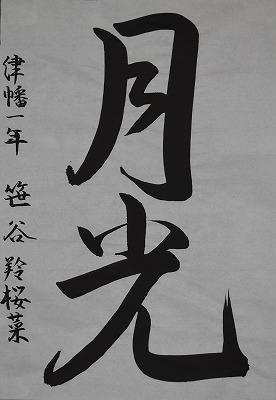 月光
津幡一年 笹谷羚桜菜